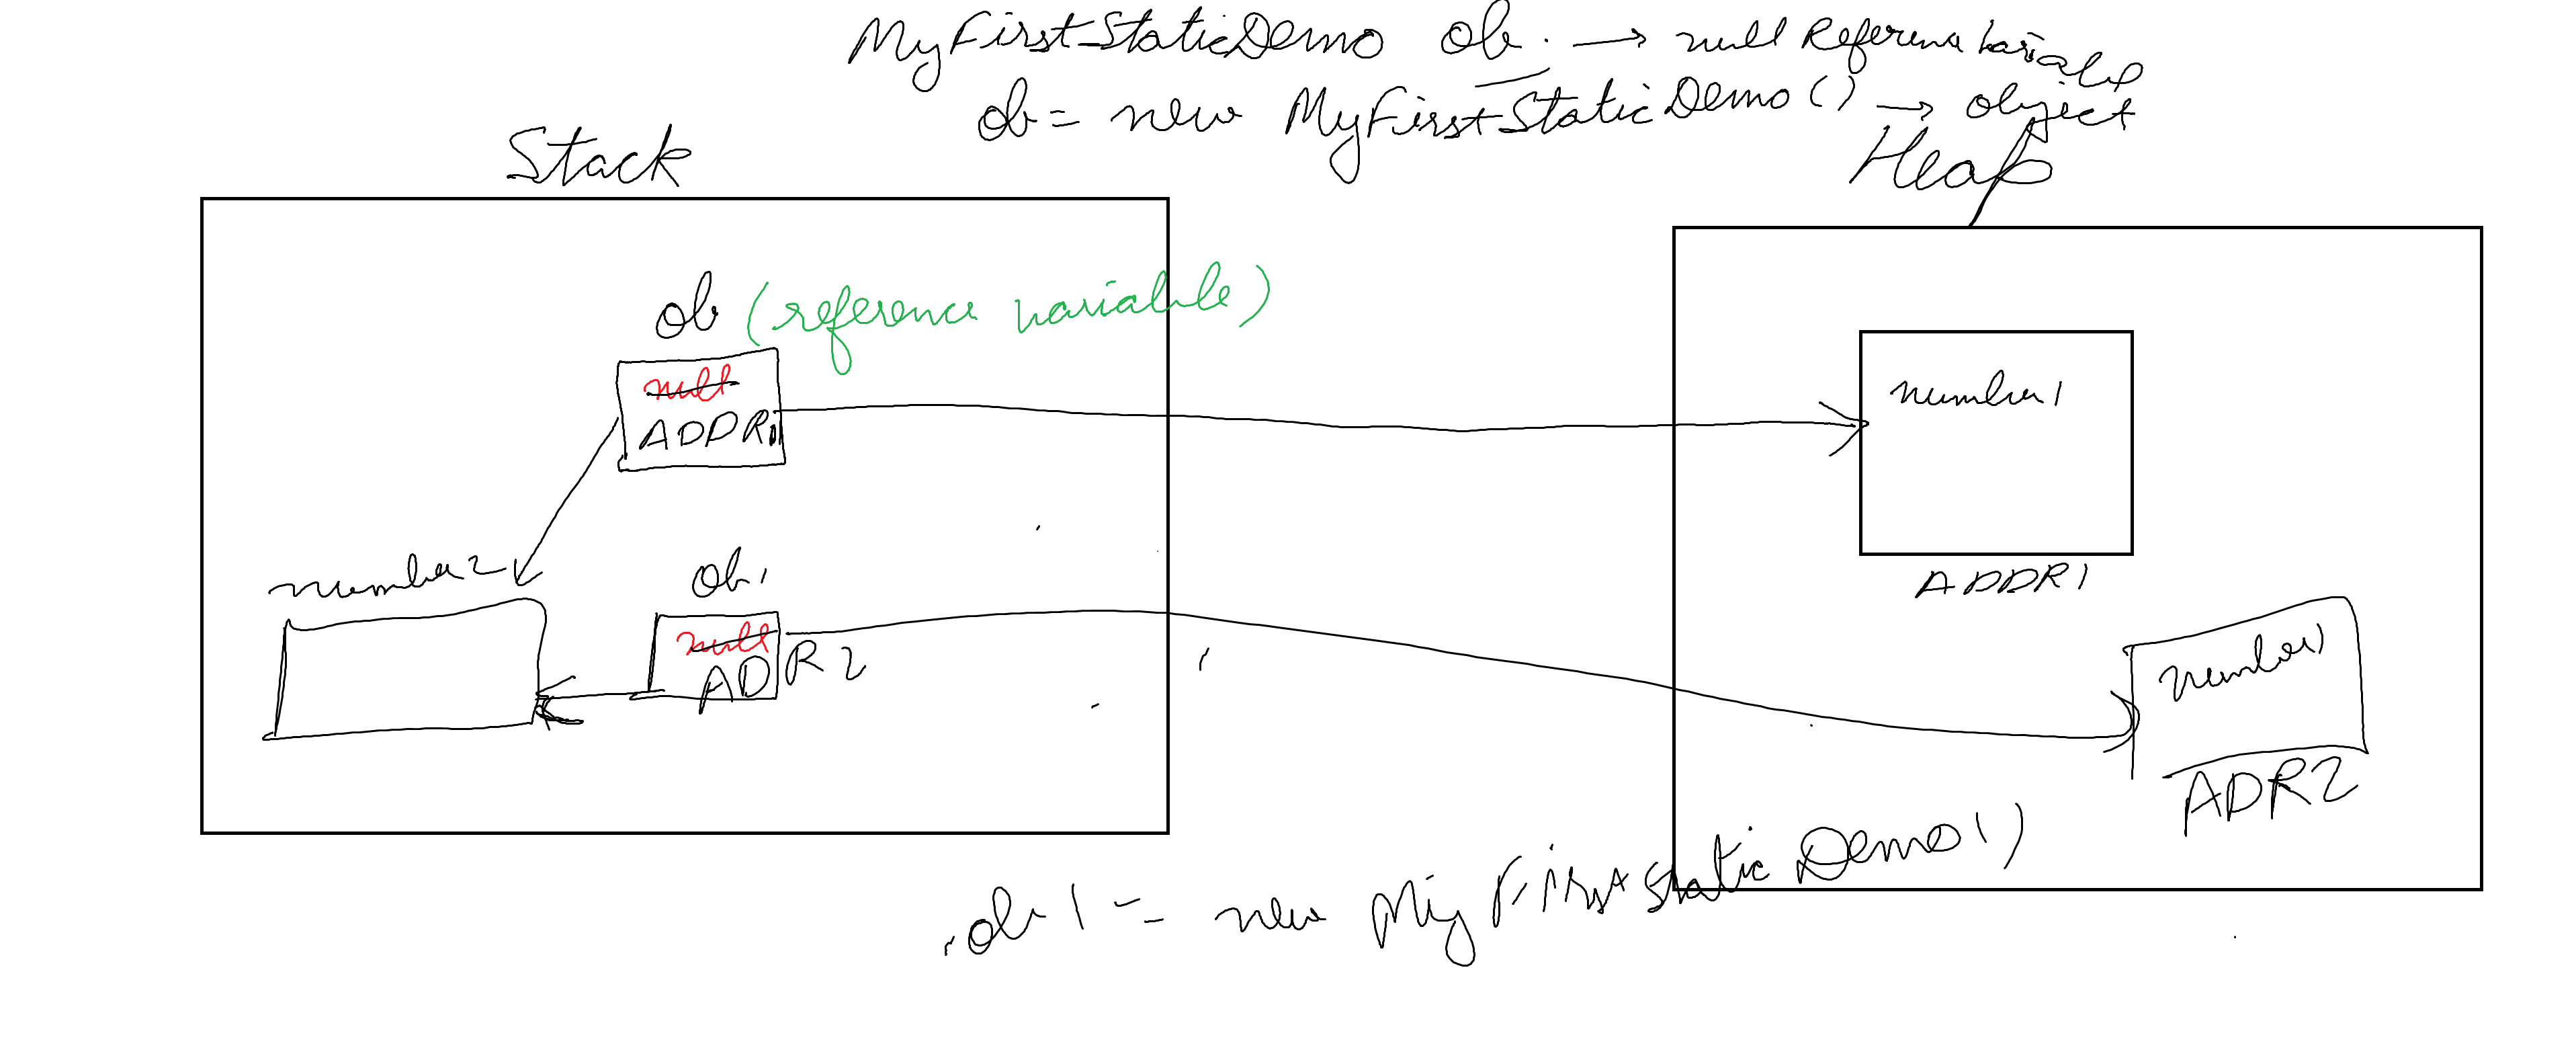 MyFirstStaticDemo ob. → null Reference Variable
ob = new MyFirstStaticDemo() → object
Stack
Heap
ob (reference variable)
null
ADDR1
number1
ADDR1
number2
ob1
null
ADR2
number1
ADR2
ob1 = new MyFirstStaticDemo()